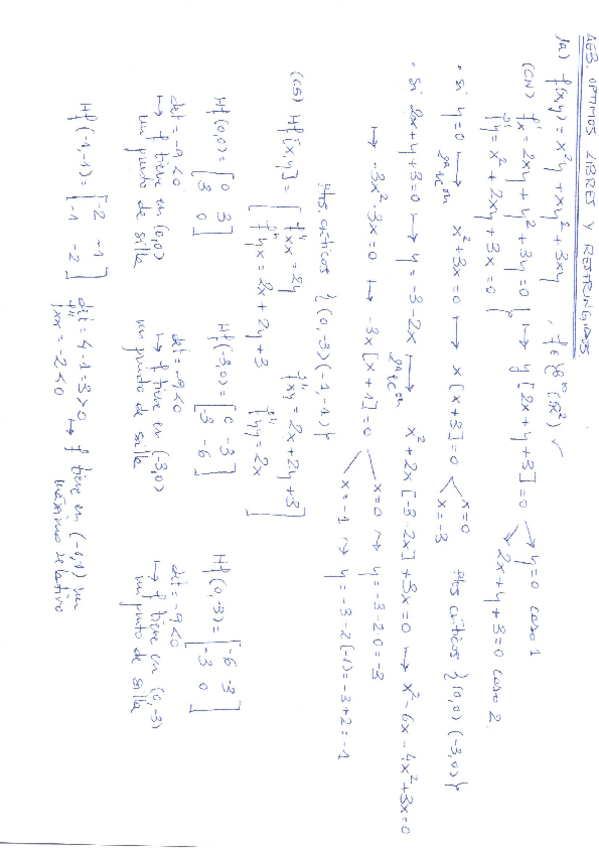 AE3. OPTIMOS LIBRES Y RESTRINGIDOS
1a) f(x,y) = x²y + xy² + 3xy, f ∈ C^∞(R²) ✓
(CN) f'x = 2xy + y² + 3y = 0 } ↦ y[2x+y+3] = 0 → y=0 caso 1
f'y = x² + 2xy + 3x = 0 ↘ 2x+y+3=0 caso 2
• si y=0 ⟼ 2ª ec x²+3x=0 ⟼ x(x+3)=0 < x=0 x=-3 Ptos críticos {(0,0) (-3,0)}
• si 2x+y+3=0 ⟼ y=-3-2x ⟼ 2ª ec x²+2x[-3-2x]+3x=0 → x²-6x-4x²+3x=0
↦ -3x²-3x=0 ↦ -3x[x+1]=0 < x=0 ↝ y=-3-2·0=-3
x=-1 ↝ y=-3-2(-1)=-3+2=-1
Ptos. críticos {(0,-3)(-1,-1)}
(CS) Hf(x,y) = [ f''xx = 2y f''xy = 2x+2y+3 ]
[ f''yx = 2x+2y+3 f''yy = 2x ]
Hf(0,0) = [ 0 3 ]
[ 3 0 ]
det = -9 < 0
↦ f tiene en (0,0)
un punto de silla
Hf(-3,0) = [ 0 -3 ]
[ -3 -6 ]
det = -9 < 0
↦ f tiene en (-3,0)
un punto de silla
Hf(0,-3) = [ -6 -3 ]
[ -3 0 ]
det = -9 < 0
↦ f tiene en (0,-3)
un punto de silla
Hf(-1,-1) = [ -2 -1 ] det = 4-1 = 3 > 0 ↦ f tiene en (-1,-1) un
[ -1 -2 ] f''xx = -2 < 0 máximo relativo